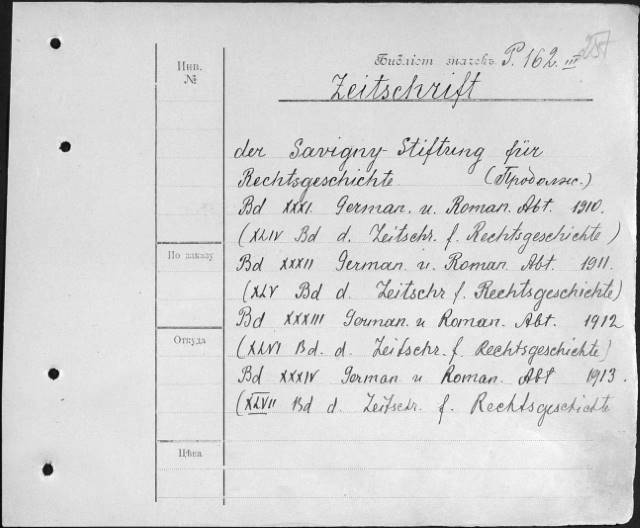 Инв.
№
Библіот. значекъ. P. 162. III
Zeitschrift
der Savigny-Stiftung für
Rechtsgeschichte (Продолж.)
Bd XXXI German. u. Roman. Abt. 1910.
(XLIV Bd d. Zeitschr. f. Rechtsgeschichte)
По заказу
Bd XXXII German. u. Roman. Abt. 1911.
(XLV Bd d. Zeitschr f. Rechtsgeschichte)
Bd XXXIII German. u Roman. Abt. 1912
Откуда
(XLVI Bd. d. Zeitschr. f. Rechtsgeschichte)
Bd XXXIV German u Roman. Abt 1913.
(XLVII Bd d. Zeitschr. f. Rechtsgeschichte
Цѣна